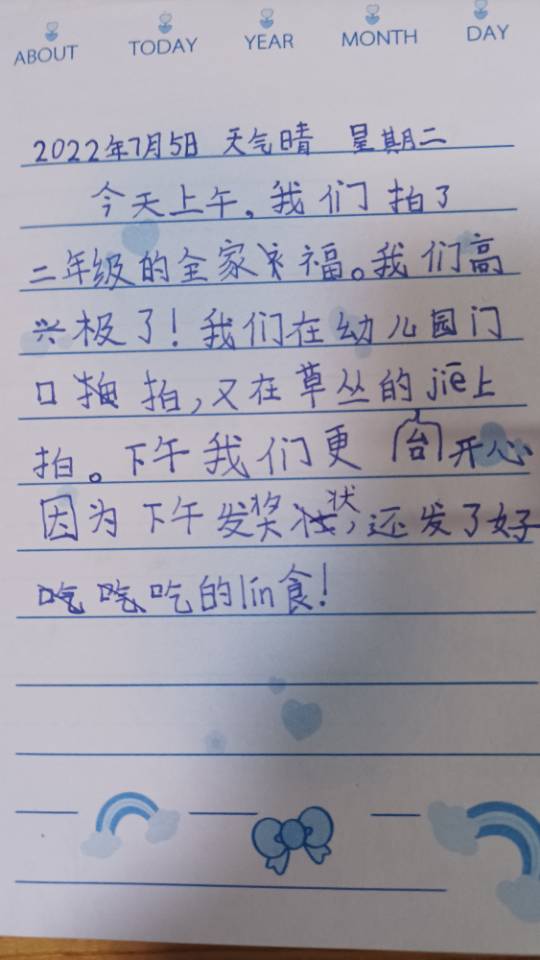 ABOUT TODAY YEAR MONTH DAY
2022年7月5日 天气晴 星期二
今天上午,我们拍了
二年级的全家福。我们高
兴极了!我们在幼儿园门
口拍,又在草丛的jiē上
拍。下午我们更台开心
因为下午发奖状,还发了好
吃的lin食!